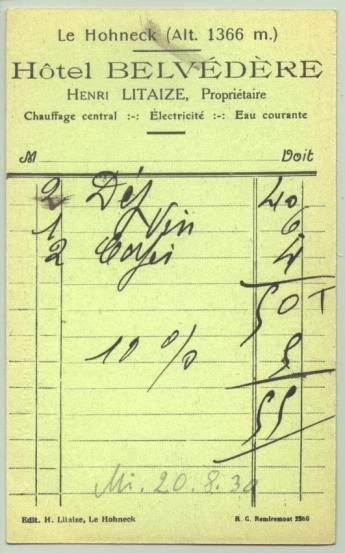 Le Hohneck (Alt. 1366 m.)
Hôtel BELVÉDÈRE
HENRI LITAIZE, Propriétaire
Chauffage central :-: Électricité :-: Eau courante
M Doit
2 Déj 40
1 Vin 6
2 Cafés 4
50 T
10 % 5
55
Mi. 20.8.30
Edit. H. Litaize, Le Hohneck R. G. Remiremont 2266